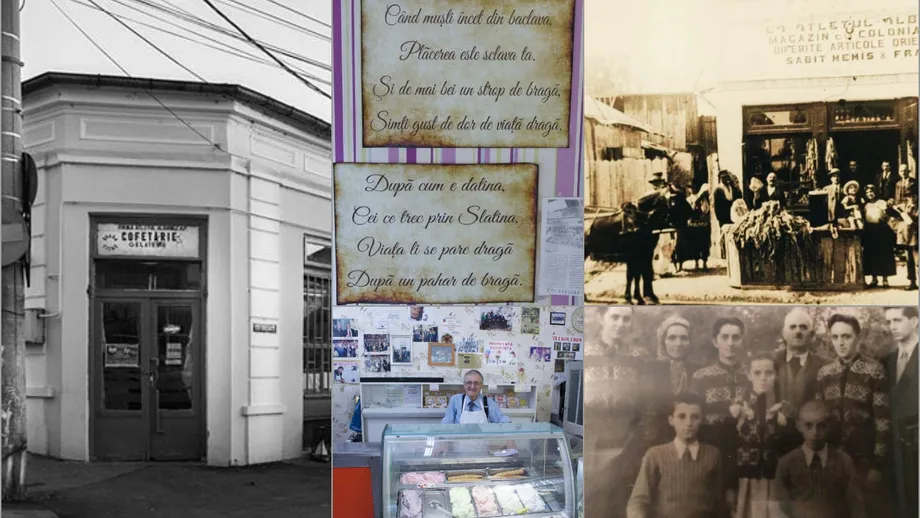 COFETĂRIE
GELATERIE
Când muști încet din baclava,
Plăcerea este sclava ta.
Și de mai bei un strop de bragă,
Simți gust de dor de viață dragă.
După cum e datina,
Cei ce trec prin Slatina,
Viața li se pare dragă
După un pahar de bragă.
LA ATLETUL ALB
MAGAZIN CU COLONIA
DIFERITE ARTICOLE ORIE
SABIT MEMIS & FRA